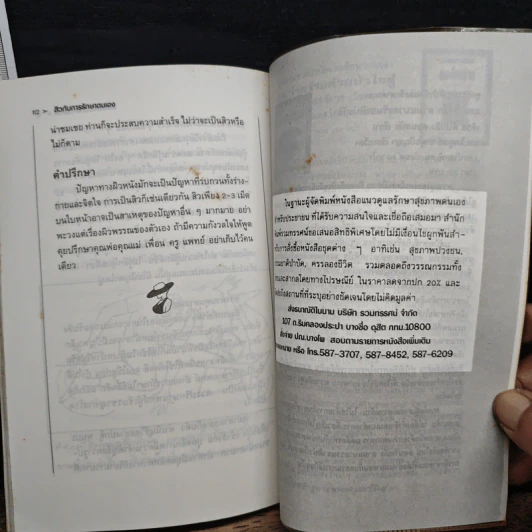 112 สิวกับการรักษาตนเอง
น่าชมเชย ท่านก็จะประสบความสำเร็จ ไม่ว่าจะเป็นสิวหรือ
ไม่ก็ตาม
คำปรึกษา
ปัญหาทางผิวหนังมักจะเป็นปัญหาที่รบกวนทั้งร่าง-
กายและจิตใจ การเป็นสิวก็เช่นเดียวกัน สิวเพียง 2-3 เม็ด
บนใบหน้าอาจเป็นสาเหตุของปัญหาอื่น ๆ มากมาย อย่า
พะวงแต่เรื่องผิวพรรณของตัวเอง ถ้ามีความกังวลใจให้พูด
คุยปรึกษาคุณพ่อคุณแม่ เพื่อน ครู แพทย์ อย่าเก็บไว้คน
เดียว
ในฐานะผู้จัดพิมพ์หนังสือแนวดูแลรักษาสุขภาพตนเอง
สำหรับประชาชน ที่ได้รับความสนใจและเชื่อถือเสมอมา สำนัก
พิมพ์รวมทรรศน์ขอเสนอสิทธิพิเศษโดยไม่มีเงื่อนไขผูกพันสำ-
หรับการสั่งซื้อหนังสือชุดต่าง ๆ อาทิเช่น สุขภาพปวงชน,
ธรรมชาติบำบัด, ครรลองชีวิต รวมตลอดถึงวรรณกรรมทั้ง
และสากลโดยทางไปรษณีย์ ในราคาลดจากปก 20% และ
ส่งถึงสถานที่ที่ระบุอย่างชัดเจนโดยไม่คิดมูลค่า
ส่งธนาณัติในนาม บริษัท รวมทรรศน์ จำกัด
107 ถ.ริมคลองประปา บางซื่อ ดุสิต กทม.10800
สั่งจ่าย ปณ.บางโพ สอบถามรายการหนังสือเพิ่มเติม
หรือ โทร.587-3707, 587-8452, 587-6209